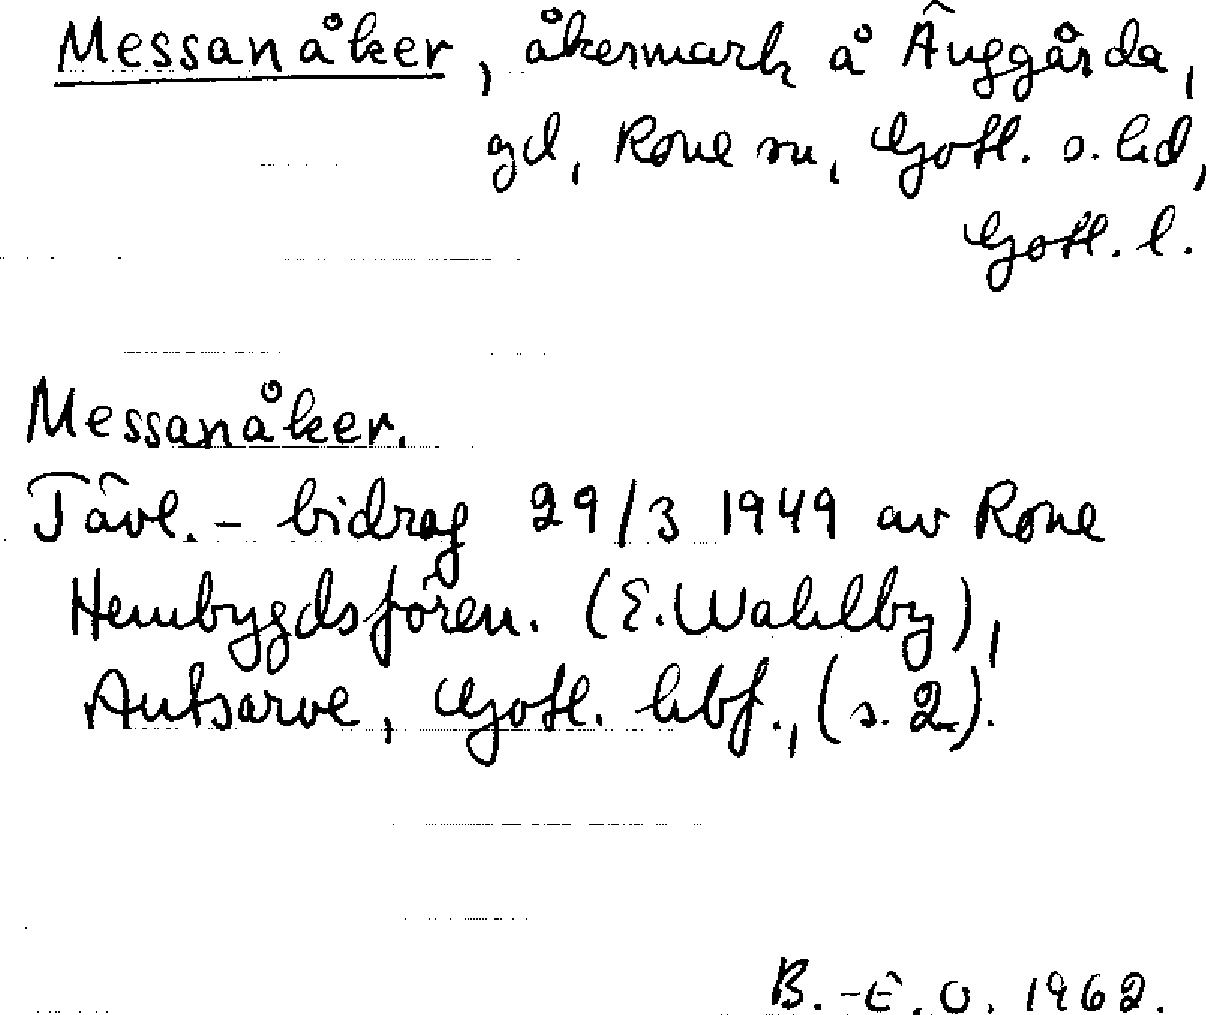 Messanåker, åkermark å Änggårda,
gd, Rone sn, Gotl. s. hd,
Gotl. l.
Messanåker.
Tävl. - bidrag 29/3 1949 av Rone
Hembygdsfören. (E. Wahlby),
Autsarve, Gotl. hbf., (s. 2).
B.-E. O. 1962.